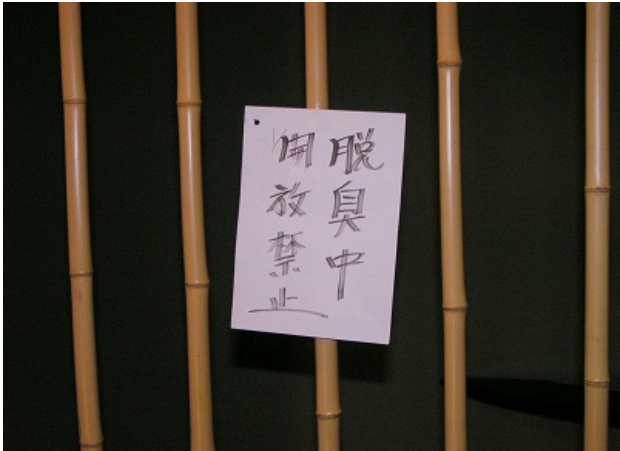 脱臭中
開放禁止